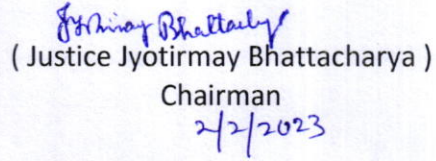 Jyotirmay Bhattacharya
( Justice Jyotirmay Bhattacharya )
Chairman
2/2/2023